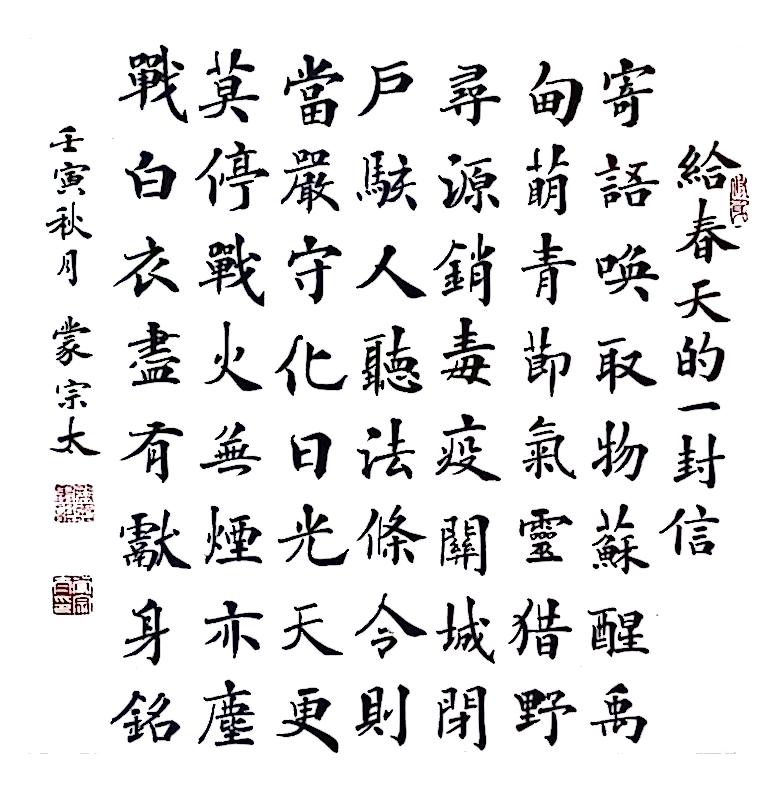 給春天的一封信
寄語喚取物蘇醒禹
甸萌青節氣靈猎野
尋源銷毒疫關城閉
戶駭人聽法條令則
當嚴守化日光天更
莫停戰火無煙亦塵
戰白衣盡有獻身銘
壬寅秋月 蒙宗太